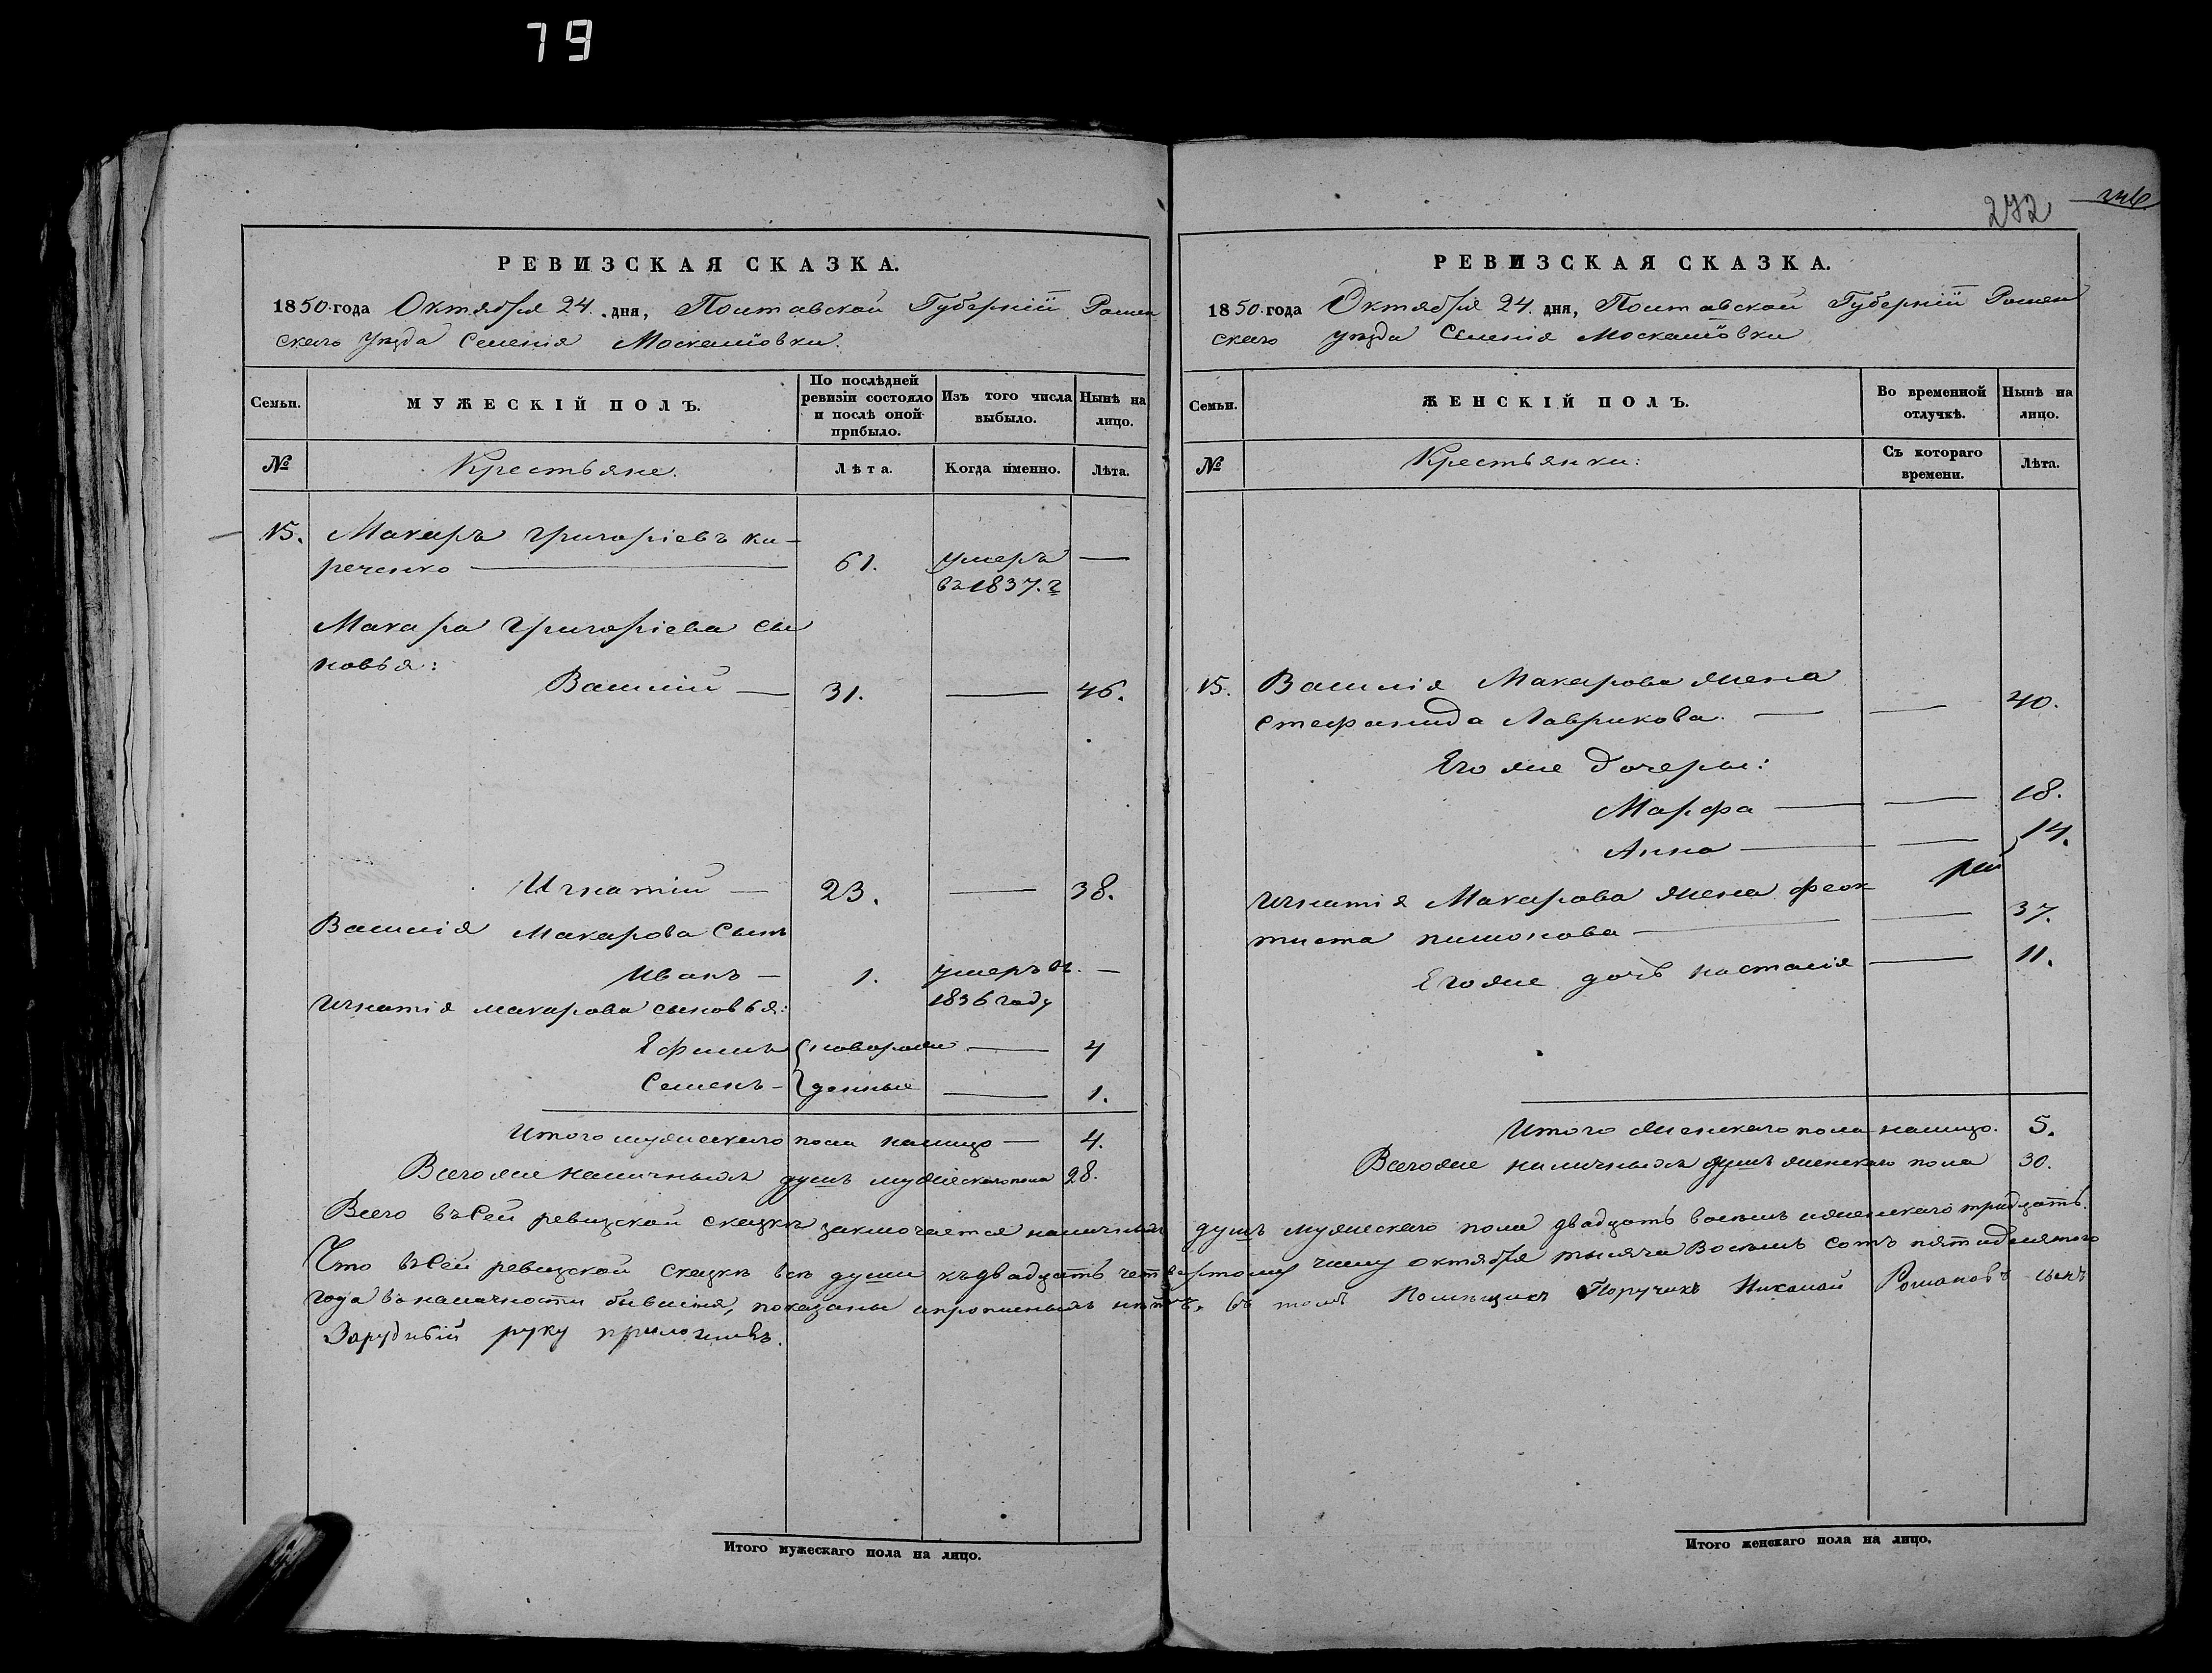 79
272
РЕВИЗСКАЯ СКАЗКА.
1850 года Октября 24. дня, Полтавской Губерніи Ромен
скаго Уезда Селенія Москалiовки.
Семьи.
МУЖЕСКІЙ ПОЛЪ.
По послѣдней ревизіи состояло и послѣ оной прибыло.
Изъ того числа выбыло.
Нынѣ на лицо.
№
Крестьяне.
Лѣта.
Когда именно.
Лѣта.
15. Макаръ Григоріевъ Ки-
реченко — 61. умеръ —
въ 1837. г
Макара Григоріева сы
новья:
Василій — 31. — 46.
Игнатій — 23. — 38.
Василія Макарова сынъ
Иванъ — 1. умеръ въ. —
1836 году
Игнатія Макарова сыновья:
Ефимъ { новорож — 4
Семенъ — { денные — 1.
Итого мужескаго пола налицо — 4.
Всего же наличныхъ душъ мужескаго пола 28.
РЕВИЗСКАЯ СКАЗКА.
1850 года Октября 24. дня, Полтавской Губерніи Ромен
скаго уезда Селенія Москалiовки
Семьи.
ЖЕНСКІЙ ПОЛЪ.
Во временной отлучкѣ.
Нынѣ на лицо.
№
Крестьянки:
Съ котораго времени.
Лѣта.
15. Василія Макарова жена
Стефанида Лаврикова. — — 40.
Его же дочеры:
Марфа — — 18.
Анна — — 14.
Игнатія Макарова жена Феок
тиста — — 37.
Его же дочь Настасія — 11.
Итого женскаго пола налицо. 5.
Всего же наличныхъ душъ женскаго пола 30.
Всего въ сей ревизской сказкѣ заключается наличныхъ душъ мужескаго пола двадцать восемь и женскаго тридцать.
Что въ сей ревизской сказкѣ все души къ двадцать четвертому числу октября тысяча восемь сотъ пятидесятого
года въ наличности бывшія, показаны и прописныхъ нѣтъ, въ томъ Помещикъ Поручикъ Николай Романовъ сынъ
Зарудный руку приложивъ.
Итого мужескаго пола на лицо.
Итого женскаго пола на лицо.